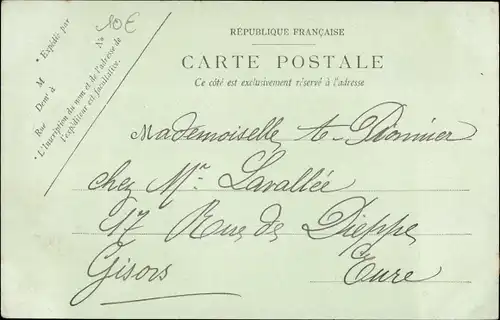 10€
* Expédié par
M
Demt à
Rue Nº
* L'Inscription du nom et de l'adresse de
l'expéditeur est facultative.
RÉPUBLIQUE FRANÇAISE
CARTE POSTALE
Ce côté est exclusivement réservé à l'adresse
Mademoiselle A. Pionnier
chez Mr Lavallée
17 Rue de Dieppe
Gisors Eure